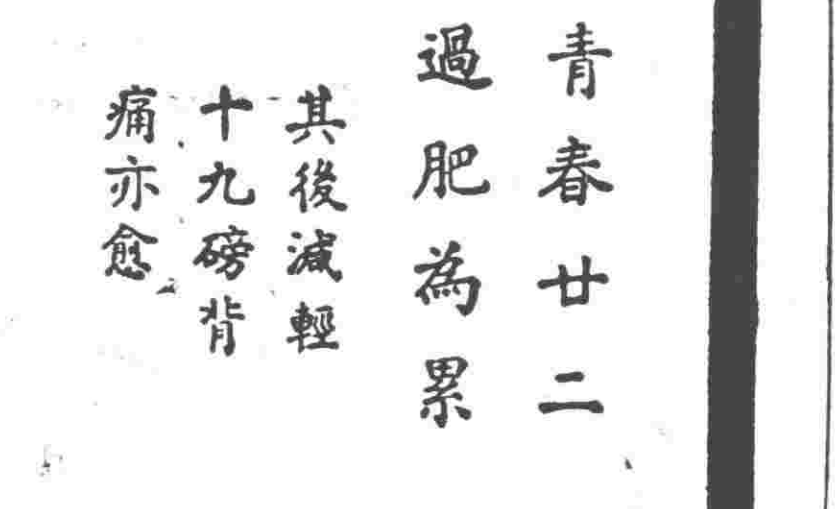 青春廿二
過肥為累
其後減輕
十九磅背
痛亦愈